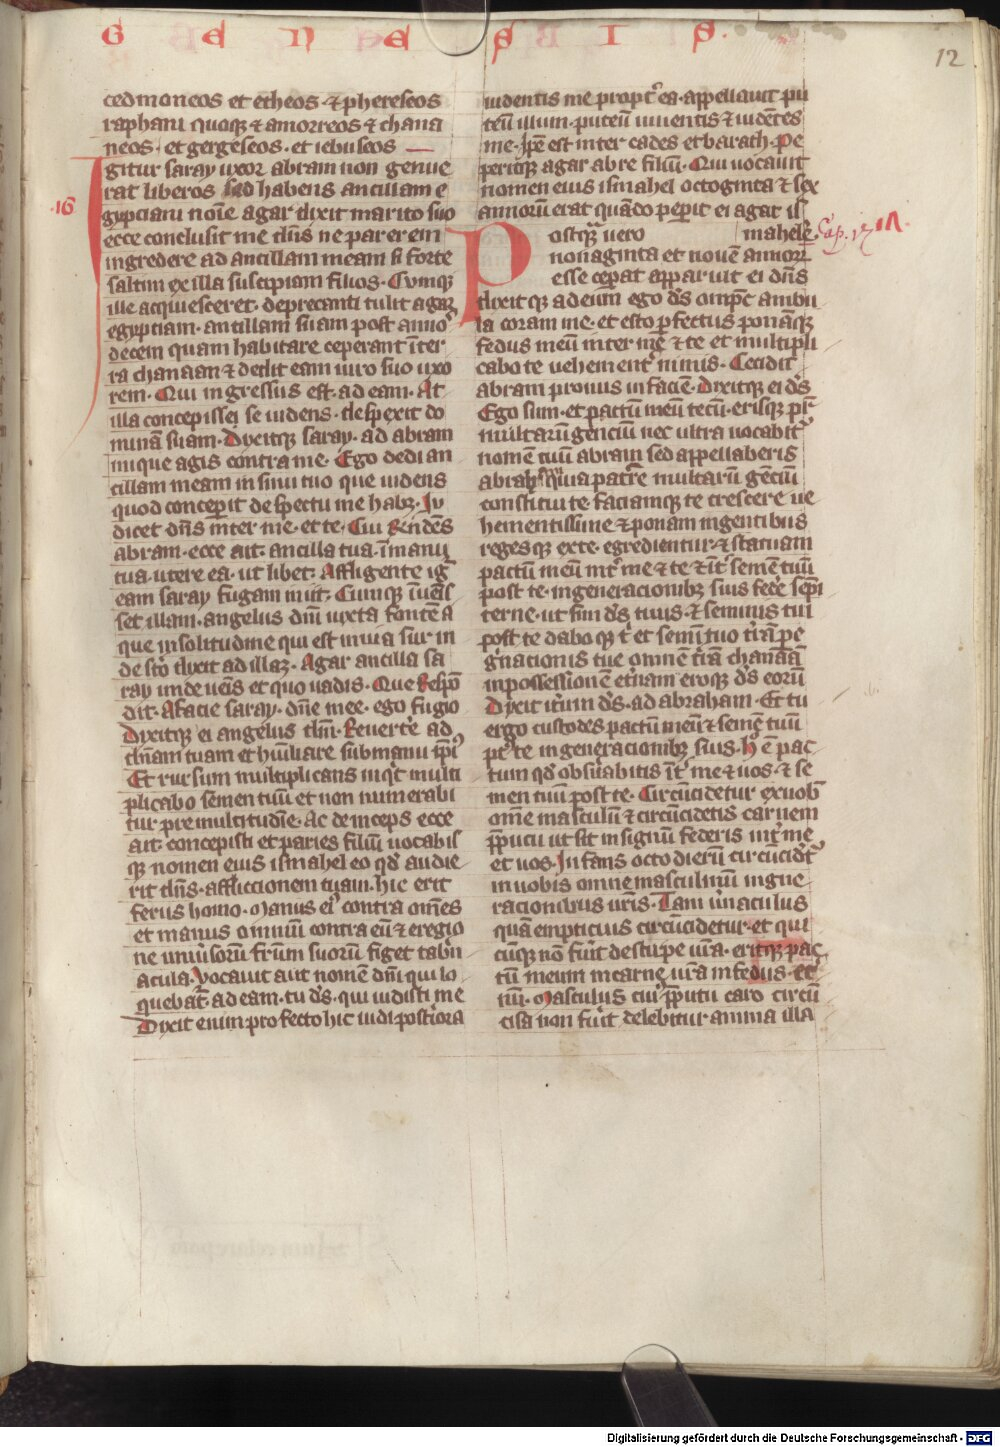 GENESIS.
12
cedmoneos et etheos ⁊ phereseos
raphaim quoqꝫ ⁊ amorreos ⁊ chana
neos et gergeseos et iebuseos
16
Igitur saray uxor abram non genue
rat liberos sed habens ancillam e
gypciam noīe agar dixit marito suo
ecce conclusit me dn̄s ne parerem
ingredere ad ancillam meam si forte
saltim ex illa suscipiam filios. Cumqꝫ
ille acquiesceret deprecanti tulit agar
egyptiam ancillam suam post anno
decem quam habitare ceperant ī ter
ra chanaan ⁊ dedit eam uiro suo uxo
rem. Qui ingressus est ad eam. At
illa concepisse se uidens despexit do
minā suam. Dixitqꝫ saray ad abram
inique agis contra me. Ego dedi an
cillam meam in sinu tuo que uidens
quod conceperit despectui me habꝫ. Iu
dicet dn̄s inter me et te. Cui r̄ndēs
abram ecce ait ancilla tua ī manu
tua utere ea ut libet. Affligente ig̾
eam saray fugam iniit. Cumqꝫ īuenis
set illam angelus dn̄i iuxta fontē a
que in solitudine qui est in uia sur in
deserto dixit ad illaꝫ. Agar ancilla sa
ray unde uenis et quo uadis. Que respō
dit. A facie saray dn̄e mee ego fugio
Dixitqꝫ ei angelus dn̄i. Reuertere ad
dn̄am tuam et humiliare sub manu ip̄i
Et rursum multiplicans inquit multi
plicabo semen tuū et non numerabi
tur pre multitudīe. Ac deinceps ecce
ait concepisti et paries filiū uocabis
qꝫ nomen eius ismahel eo qd̾ audie
rit dn̄s affliccionem tuam. hic erit
ferus homo. Manus ei̾ contra om̄es
et manus omnium contra eū ⁊ e regio
ne uniuersorū fr̄um suorū figet tab̾n
acula. Vocauit aut nomē dn̄i qui lo
quebat̾ ad eam tu ds̾ qui uidisti me
Dixit enim profecto hic uidi posteriora
uidentis me propt̾ ea appellauit pu
teū illum puteū uiuentis ⁊ uidētes
me. Ip̄e est inter cades et barath. Pe
peritqꝫ agar abre filiū. Qui uocauit
nomen eius ismahel octoginta ⁊ sex
annorū erat quādo peperit ei agar is
mahelē. Cap. 17 17
Postqꝫ uero
nonaginta et nouē annorꝝ
esse ceperat apparuit ei dn̄s
dixitqꝫ ad eum ego ds̾ omp̄c ambu
la coram me et esto perfectus ponāqꝫ
fedus meū inter me ⁊ te et multipli
cabo te uehement̾ nimis. Cecidit
abram pronus in faciē. Dixitqꝫ ei ds̾
Ego sum et pactū meū tecū erisqꝫ pr̄
multarū genciū nec ultra uocabit̾
nomē tuū abram sed appellaberis
abrahā quia patrē multarū genciū
constitui te faciamqꝫ te crescere ue
hementissime ⁊ ponam in gentibus
regesqꝫ ex te egredientur ⁊ statuam
pactū meū int̾ me ⁊ te ⁊ īt̾ semē tuū
post te in generacionibꝫ suis federe sempi
terno ut sim ds̾ tuus ⁊ seminis tui
post te daboqꝫ t̾ et semini tuo t̾rā pe
g̾nacionis tue omnē t̾rā chanaā
in possessionē et̾nam eroqꝫ ds̾ eorū
Dixit it̾um ds̾ ad abraham. Et tu
ergo custodes pactū meū ⁊ semē tuū
pt̾ te in generacionibꝫ suis. hoc ē pac
tum qd̾ obseruabitis īt̾ me ⁊ uos ⁊ se
men tuū post te. Circūcidetur ex uob̾
om̄e masculū ⁊ circūcidetis carnem
p̄puciī ut sit in signū federis int̾ me
et uos. Infans octo dierū circūcidet̾
in uobis omne masculinū in gne
racionibus uris. Tam u̾naculus
quā empticius circūcidetur et qui
cūqꝫ nō fuerit de stirpe ur̄a. eritqꝫ pac
tū meum in carne ur̄a in fedus et
nū. Masculus cui̾ p̄putii caro circū
cisa non fuerit delebitur anima illa
Digitalisierung gefördert durch die Deutsche Forschungsgemeinschaft - DFG